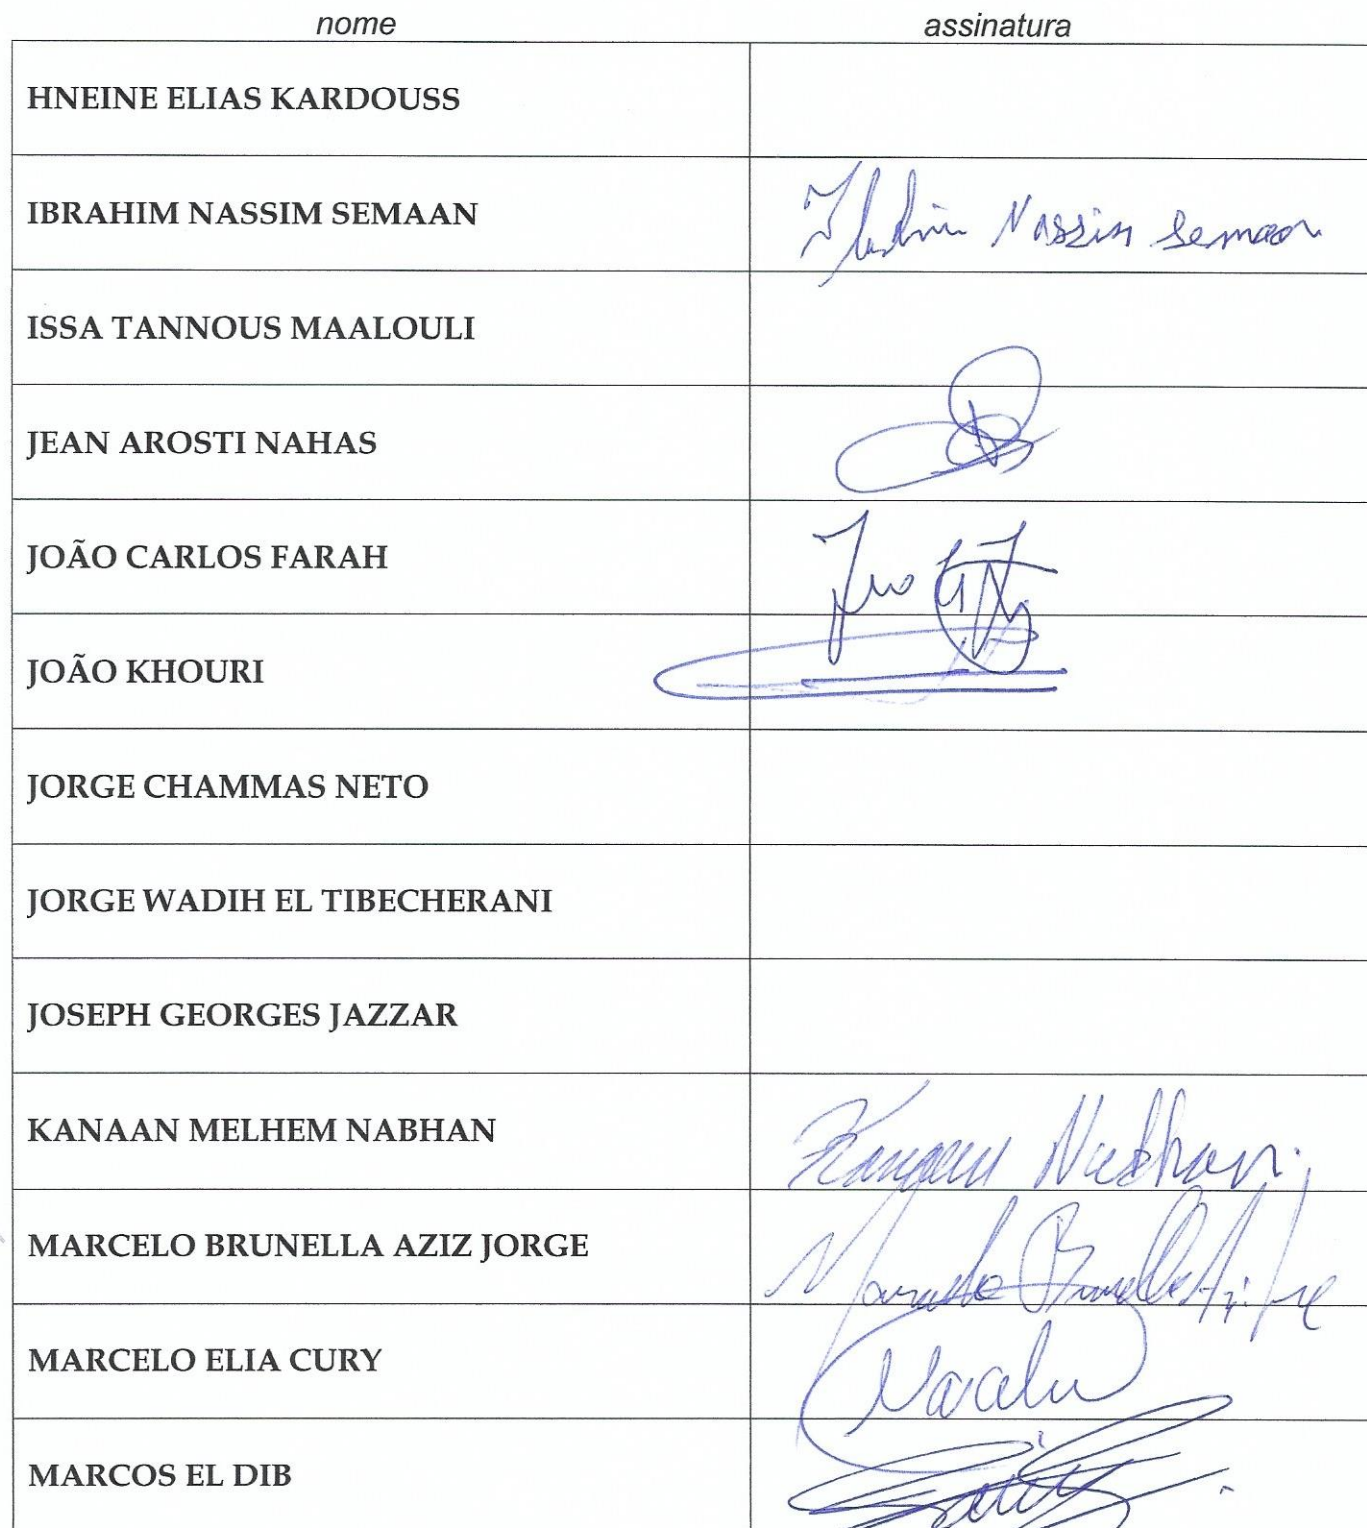 nome assinatura
HNEINE ELIAS KARDOUSS
IBRAHIM NASSIM SEMAAN Ibrahim Nassim Semaan
ISSA TANNOUS MAALOULI
JEAN AROSTI NAHAS
JOÃO CARLOS FARAH
JOÃO KHOURI
JORGE CHAMMAS NETO
JORGE WADIH EL TIBECHERANI
JOSEPH GEORGES JAZZAR
KANAAN MELHEM NABHAN Kanaan Nabhan
MARCELO BRUNELLA AZIZ JORGE Marcelo Brunella Aziz Jorge
MARCELO ELIA CURY Marcelo
MARCOS EL DIB